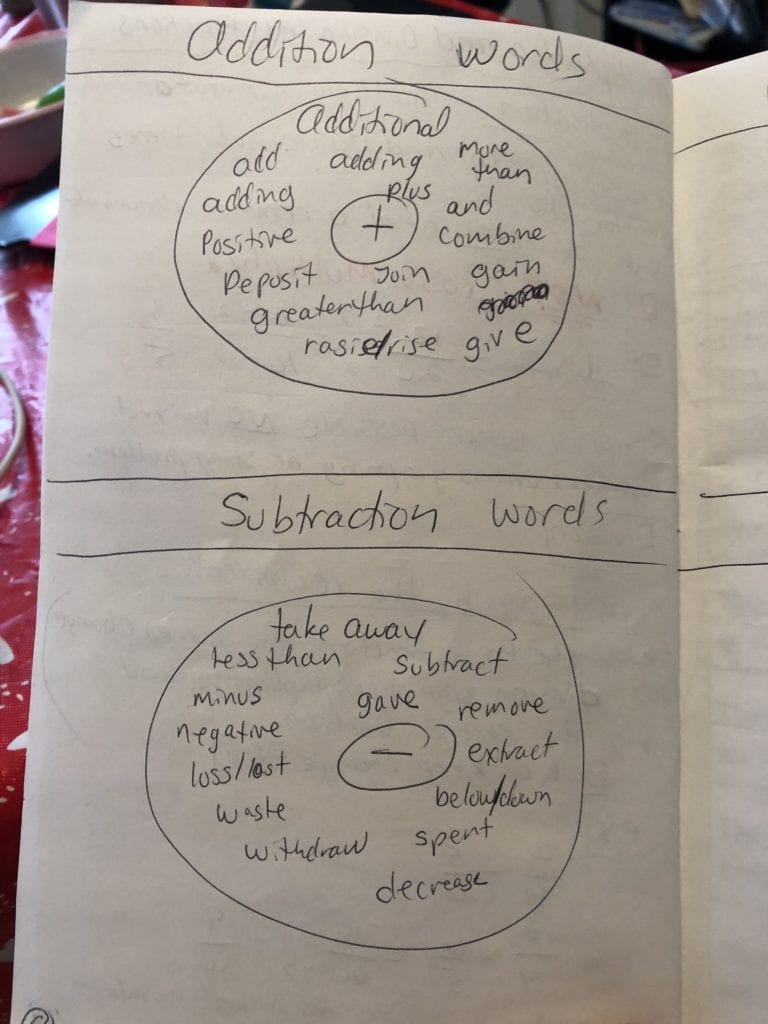 Addition words
Additional
add adding more than
adding plus and
Positive + combine
Deposit Join gain
greaterthan
rasise/rise give
Subtraction words
take away
less than subtract
minus gave remove
negative − extract
loss/lost
waste below/down
withdraw spent
decrease